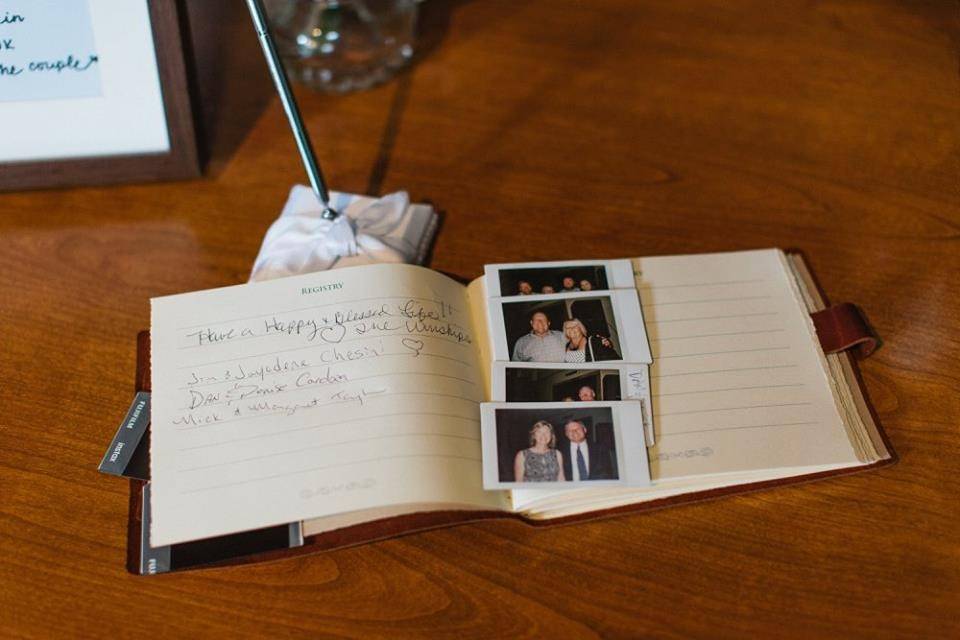 in
the couple
REGISTRY
Have a Happy & Blessed Life!!
The Winships
Jim & Jaydene Chesini
DAN & Denise Cardan
Mick & Margaret Tayl
FUJIFILM
instax